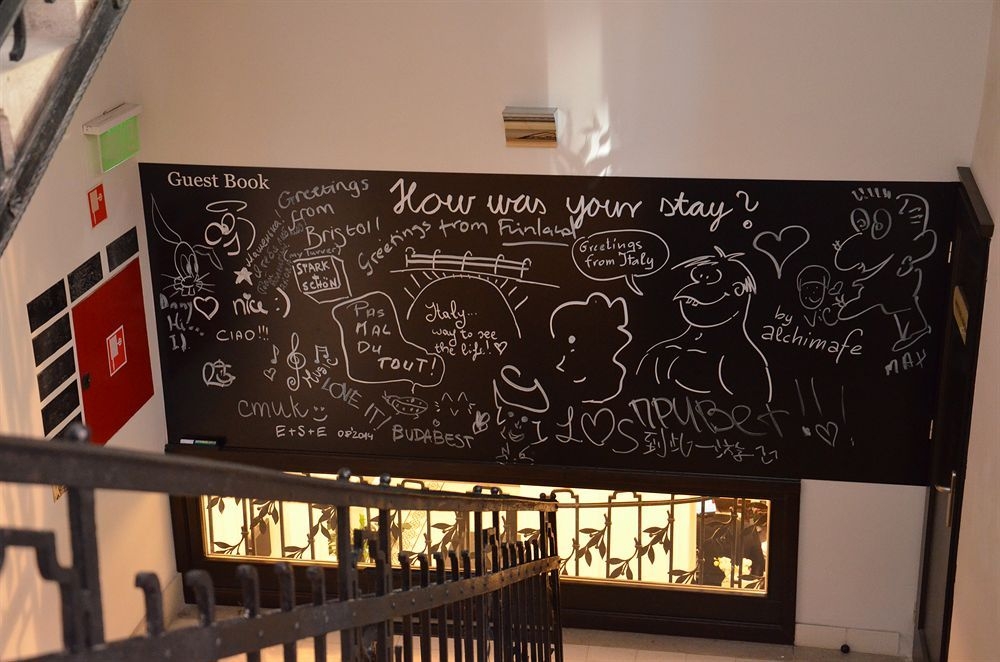 Guest Book
How was your stay?
Greetings
from
Bristol!
Greetings from Finland
Greetings
from Italy
STARK
SCHÖN
nice :)
CIAO!!!
Hi...
PAS
MAL
DU
TOUT!
Italy...
way to see
the life!!
by Vic
alchimafe
MAX
LOVE IT!
смик
E+S+E
08'2014
BUDABEST
ПРИВЕТ !!!
到此一游